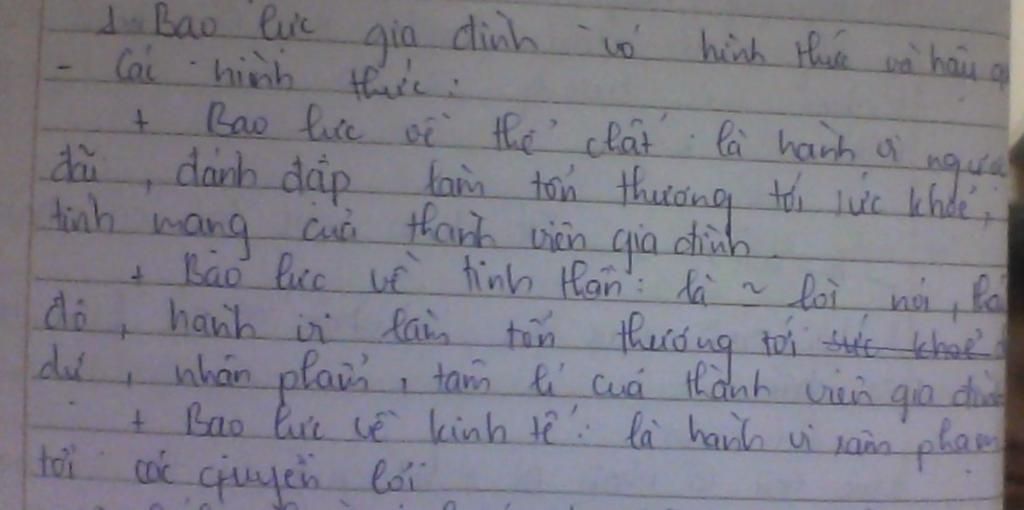 1. Bạo lực gia đình có hình thức và hậu q
- Các hình thức:
+ Bạo lực về thể chất: là hành vi ngược
đãi, đánh đập làm tổn thương tới sức khoẻ,
tính mạng của thành viên gia đình.
+ Bạo lực về tinh thần: là ~ lời nói,
độ, hành vi làm tổn thương tới sức khoẻ
dự, nhân phẩm, tâm lí của thành viên gia đình
+ Bạo lực về kinh tế: là hành vi xâm phạm
tới các quyền lợi